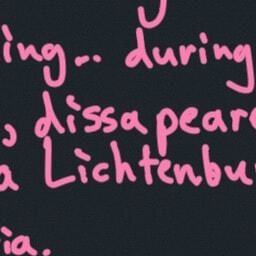 ing.. during
, dissapeare
a Lichtenbu
ia.